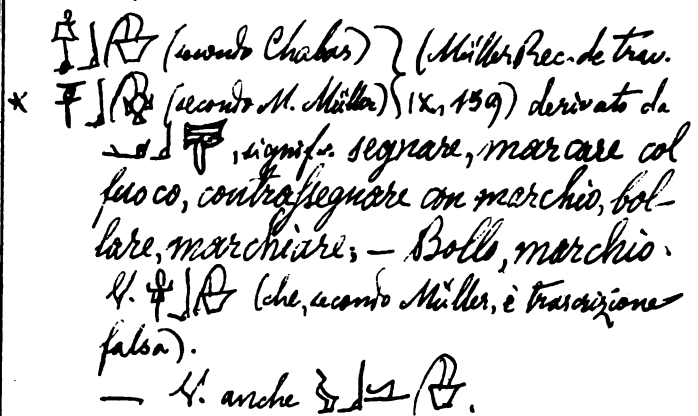 (secondo Chabas) } (Müller Rec. de trav.
* (secondo M. Müller) } IX, 159) derivato da
, signif. segnare, marcare col
fuoco, contrassegnare con marchio, bol-
lare, marchiare; — Bollo, marchio.
V. (che, secondo Müller, è trascrizione
falsa).
— V. anche .